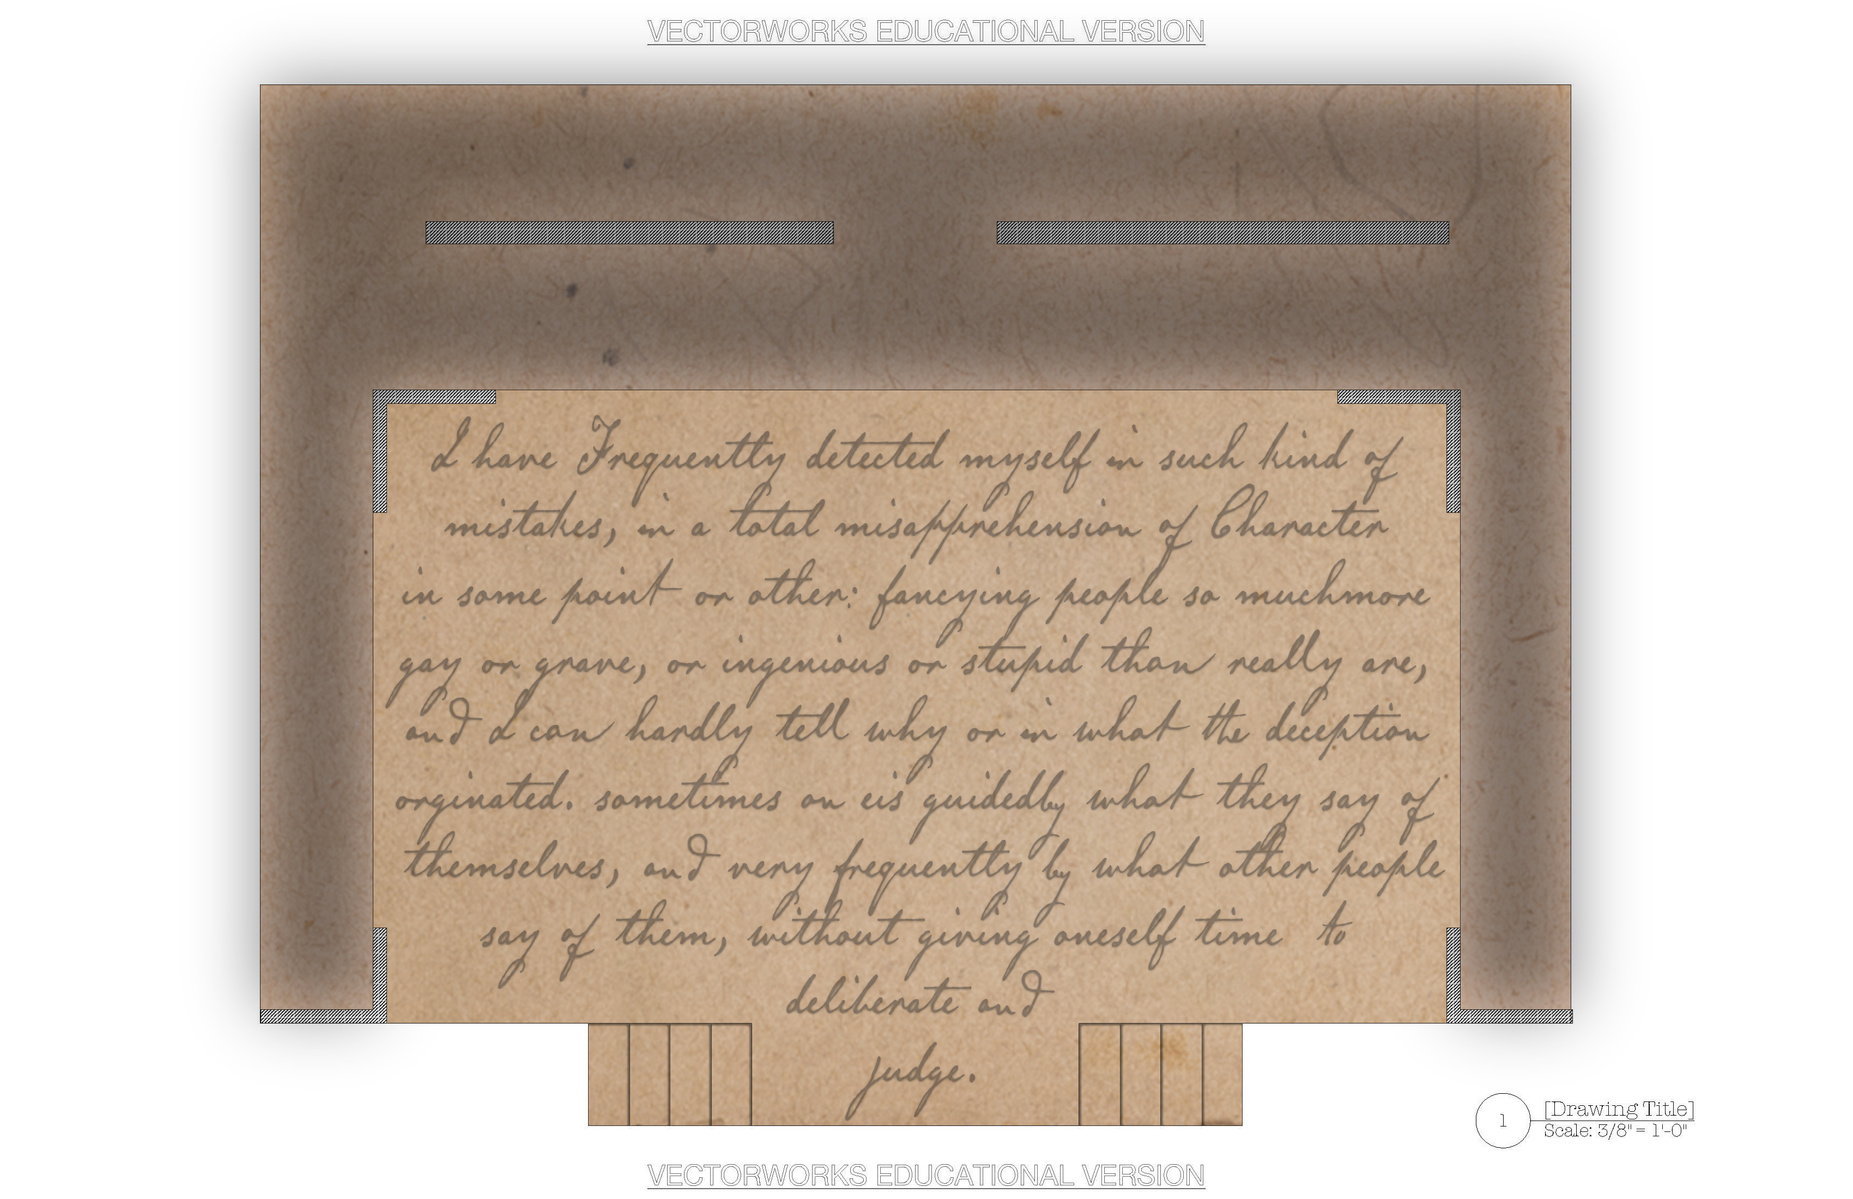 VECTORWORKS EDUCATIONAL VERSION
I have Frequently detected myself in such kind of
mistakes, in a total misapprehension of Character
in some point or other: fancying people so muchmore
gay or grave, or ingenious or stupid than really are,
and I can hardly tell why or in what the deception
orginated. sometimes on eis guidedby what they say of
themselves, and very frequently by what other people
say of them, without giving oneself time to
deliberate and
judge.
1
[Drawing Title]
Scale: 3/8" = 1'-0"
VECTORWORKS EDUCATIONAL VERSION